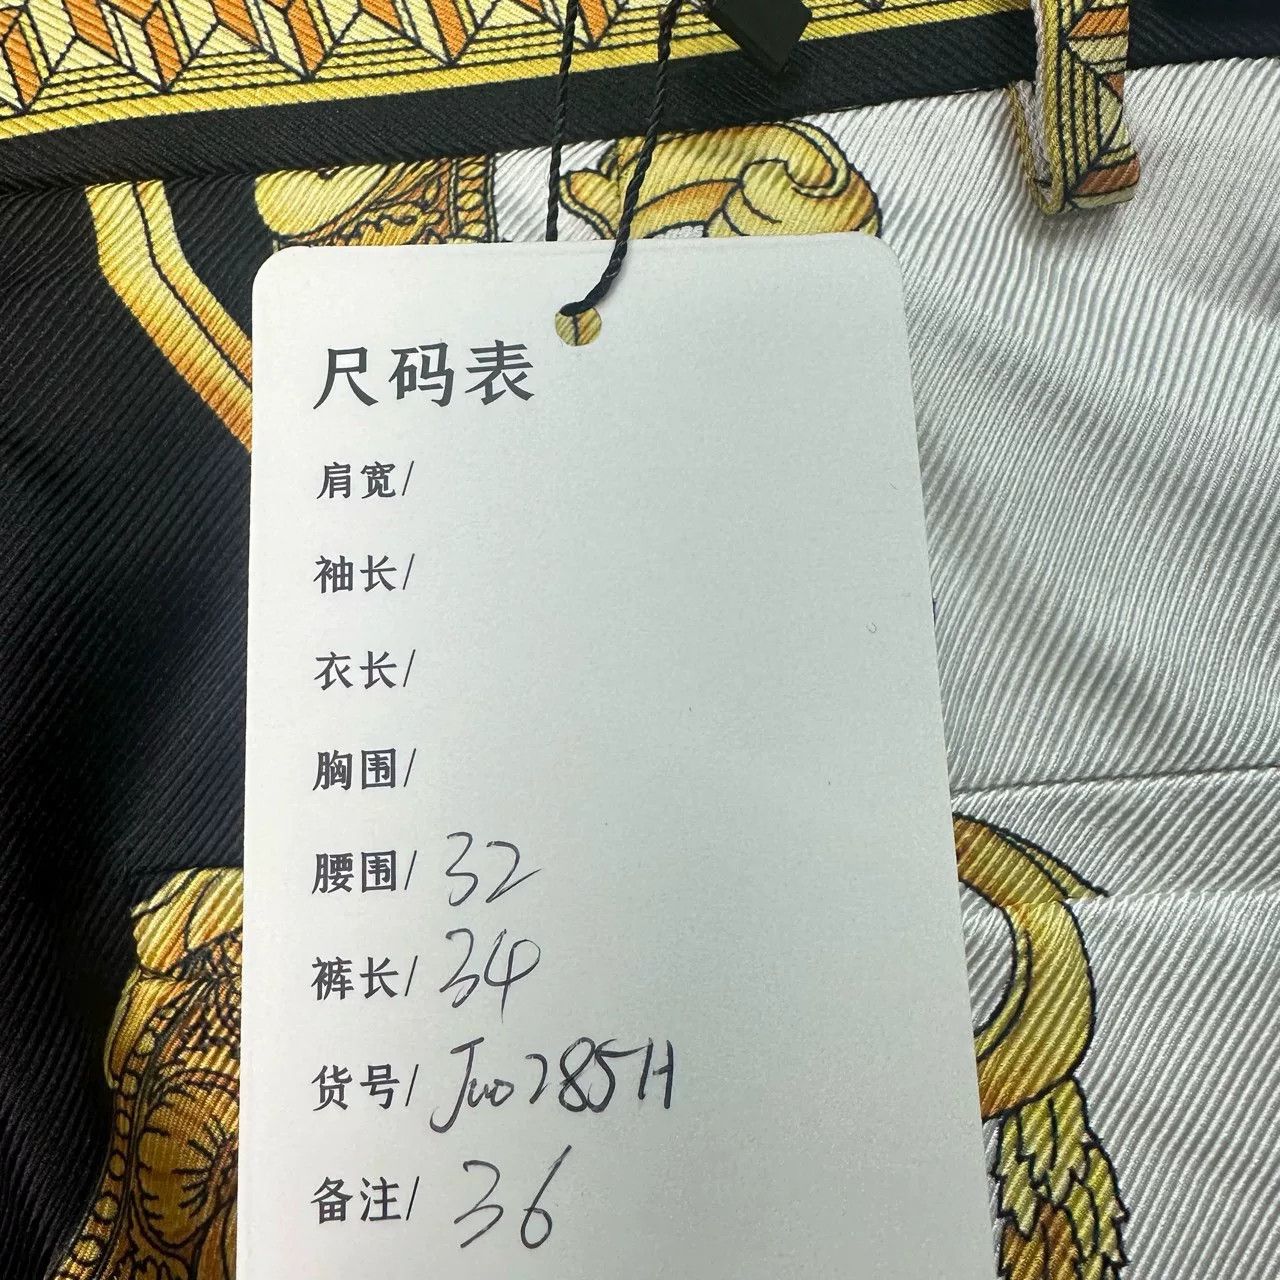 尺码表
肩宽/
袖长/
衣长/
胸围/
腰围/ 32
裤长/ 34
货号/ Juo285H
备注/ 36